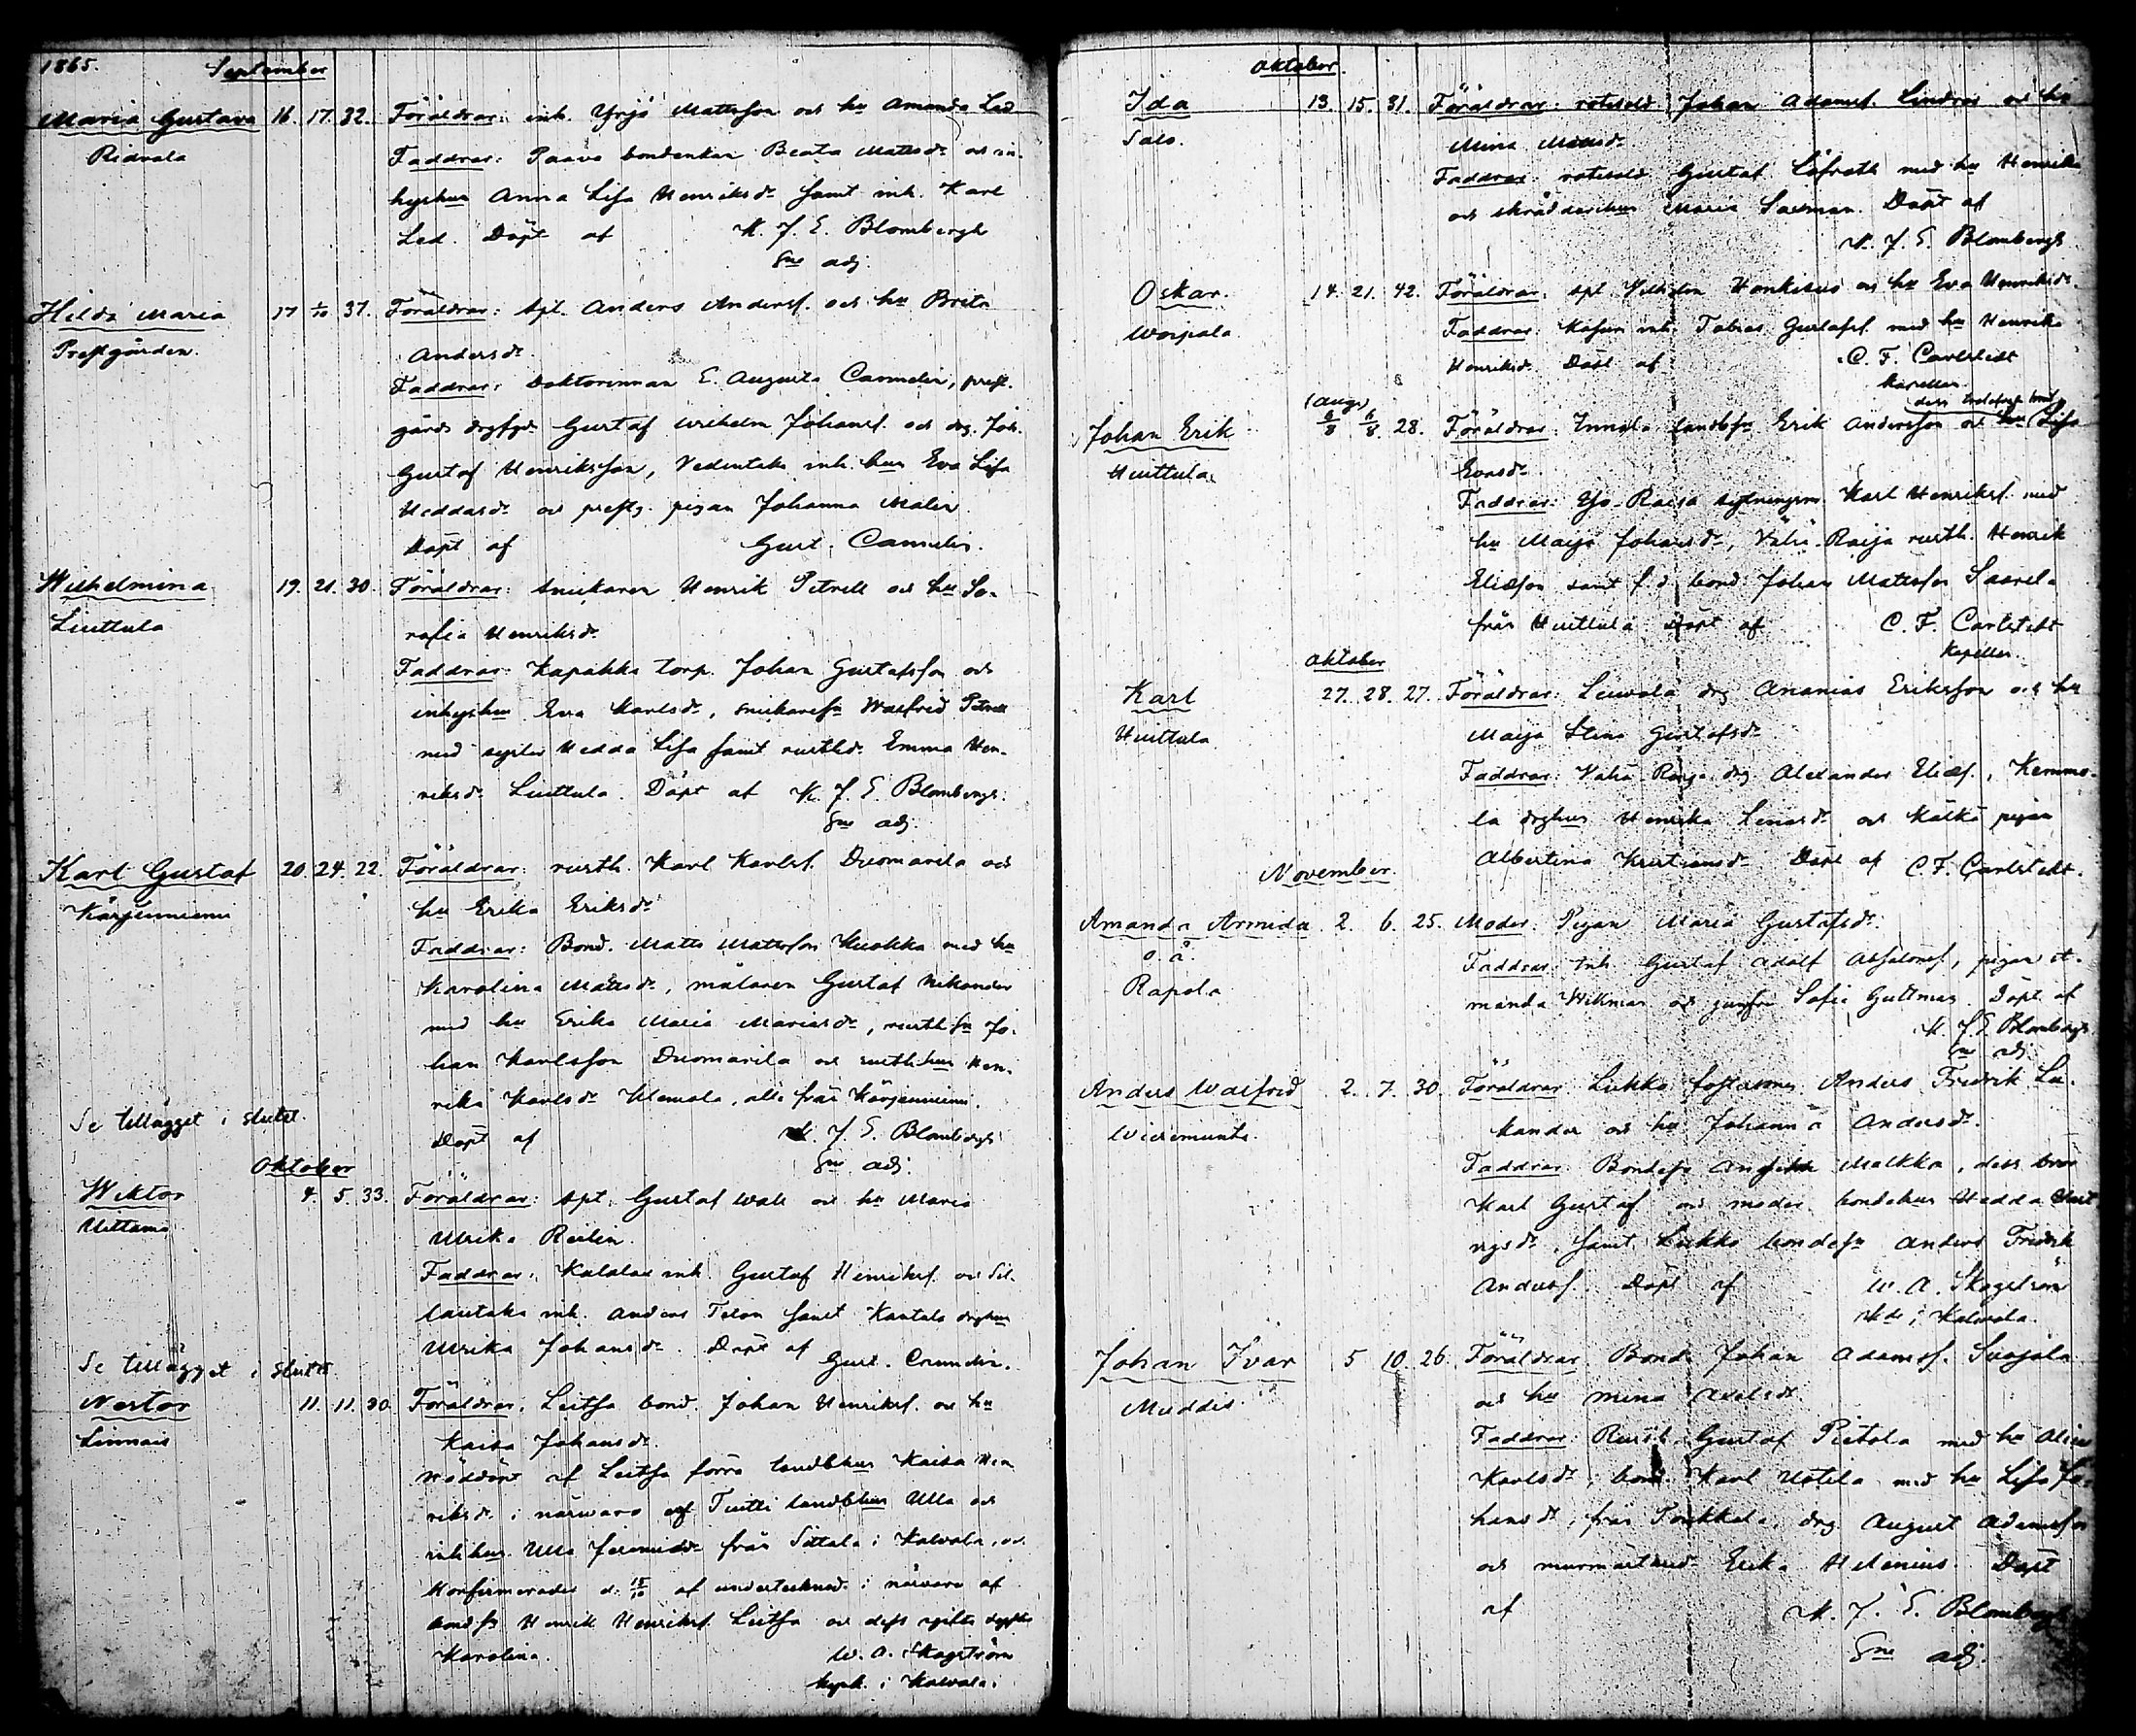 1865.
September
Maria Gustava 16. 17. 32. Föräldrar: inh. Yrjö Mattsson och hu Amanda Led
Ridvala Faddrar: Paavo bondenkan Beata Mattsdr och in-
hyshun Anna Lisa Henriksdr samt inh. Karl
Led. Döpt af K. J. E. Blombergh
Sne adj.
Hilda Maria 17 1/10 37. Föräldrar: spt. Anders Andersf. och hu Brita
Prestgården. Andersdr.
Faddrar: Doktorinnan E. Augusta Cannelin, prest-
gårds Gustaf Wilhelm Johansf. och drg. Joh.
Gustaf Henriksson, Vedentaka inh. hun Eva Lisa
Heddasdr och prestg. pigan Johanna Malin
Döpt af Gust. Cannelin.
Wilhelmina 19. 21. 30. Föräldrar: snickaren Henrik Petrell och hu Se-
Liuttula rafia Henriksdr
Faddrar: Kapakka torp. Johan Gustafsson och
inhyshun Eva Karlsdr, snickaresn Walfrid Petrell
med syster Hedda Lisa samt rusthdr Emma Hen-
riksdr Liuttula. Döpt af K. J. E. Blombergh.
Sne adj.
Karl Gustaf 20. 24. 22. Föräldrar: rusth. Karl Karlsf. Duomarila och
Kärjenniemi hu Erika Eriksdr
Faddrar: Bond. Matts Mattsson Kuokka med hu
Karolina Mattsdr, målaren Gustaf Nikander
med hu Erika Maria Mariasdr, rusthsn Jo-
han Karlsson Duomarila och rusthhun Hen-
rika Karlsdr Klemola, alla från Kärjenniemi.
Se tillägget i slutet Döpt af K. J. E. Blombergh
Sne adj.
Oktober
Wiktor 4. 5. 33. Föräldrar: spt. Gustaf Wall och hu Maria
Uittamo Ulrika Reilin.
Faddrar: inh. Gustaf Henriksf. och Sil-
lantaka inh. Anders Telon samt Kantala drghun
Ulrika Johansdr. Döpt af Gust. Cannelin.
Se tillägget i slutet
Nestor 11. 11. 30. Föräldrar: Leitsa bond. Johan Henriksf. och hu
Linnais Kaisa Johansdr.
Nöddöpt af Leitsa förra landbhun Kaisa Hen
riksdr i närwaro af Tuitti landbhun Ulla och
inhhun Ulla från Sittala i Kalvola, och
Konfirmerades d. 15/10 af undertecknad i närvaro af
bondsn Henrik Henriksf. Leitsa och dess ogifta syster
Karolina. W. A. Skogström
kapl. i Kalvola.
Oktober.
Ida 13. 15. 31. Föräldrar: rotesold Johan Adamsf. Lindros och hu
Salo. Mina Mattsdr
Faddrar: rotesold Gustaf Löfroth med hu Henrika
och skräddarehun Maria Salman. Döpt af
K. J. E. Blombergh
Oskar. 14. 21. 42. Föräldrar: spt. Wilhelm Honkisuo och hu Eva Henriksdr.
Woipala Faddrar: inh. Tobias Gustafsf. med hu Henrika
Henriksdr. Döpt af C. F. Carlstedt
kapellan.
(Aug.)
Johan Erik 6/8 8/8. 28. Föräldrar: landbsn Erik Andersson och hu Lisa
Huittula Evasdr.
Faddrar: Yso-Raija sytningsm. Karl Henriksf. med
hu Maija Johansdr, Vähä-Raija rusth. Henrik
Eliasson samt f.d. bond. Johan Mattsson Saarela
från Huittula Döpt af C. F. Carlstedt
Kapellan.
Oktober
Karl 27. 28. 27. Föräldrar: Liuvala drg Ananias Eriksson och hu
Huittula Maija Stina Gustafsdr
Faddrar: Vähä-Raija drg Alexander Eliasf., Kemmo-
la drghun Henrika Linasdr och Kalkå pigan
Albertina Kristiansdr Döpt af C. F. Carlstedt.
November.
Amanda Armida 2. 6. 25. Moder: Pigan Maria Gustafsdr.
o. ä. Faddrar: Inh. Gustaf Adolf Absalonsf, pigan A-
Rapola manda Wikman och jungfru Sofia Guttman. Döpt af
K. J. E. Blombergh
Sne adj.
Anders Walfrid 2. 7. 30. Föräldrar Lukko fosterson Anders Fredrik Lu-
Wiiremunta. kander och hu Johanna Andersdr.
Faddrar: Bondesn Malkka, dess bror
Karl Gustaf och moder bondehun Hedda
samt Lukko bondesn Anders Fredrik
Andersf. Döpt af W. A. Skogström
i Kalvola.
Johan Ivar 5 10. 26. Föräldrar Bond. Johan Adamsf. Suojala
Muddis och hu Mina Axelsdr
Faddrar: Rusth. Gustaf Pietola med hu Alina
Karlsdr; bond. Karl Uotila med hu Lisa Jo-
hansdr, från Tonkkala, drg August Adamsson
och Erika Helenius. Döpt
af K. J. E. Blombergh
Sne adj.